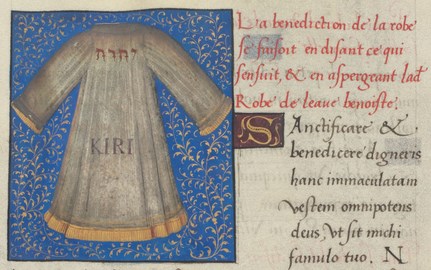 יהוה
KIRI
La benediction de la robe
se faisoit en disant ce qui
sensuit, & en aspergeant lad
Robe de leaue benoiste.
Sanctificare &
benedicere digneris
hanc immaculatam
vestem omnipotens
deus, vt sit michi
famulo tuo. N